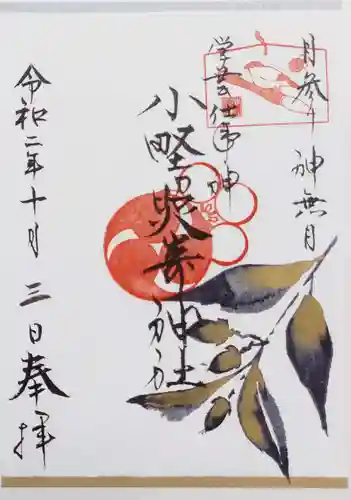 月参り 神無月
学芸 仕事 神
小野照崎神社
令和二年十月三日奉拝